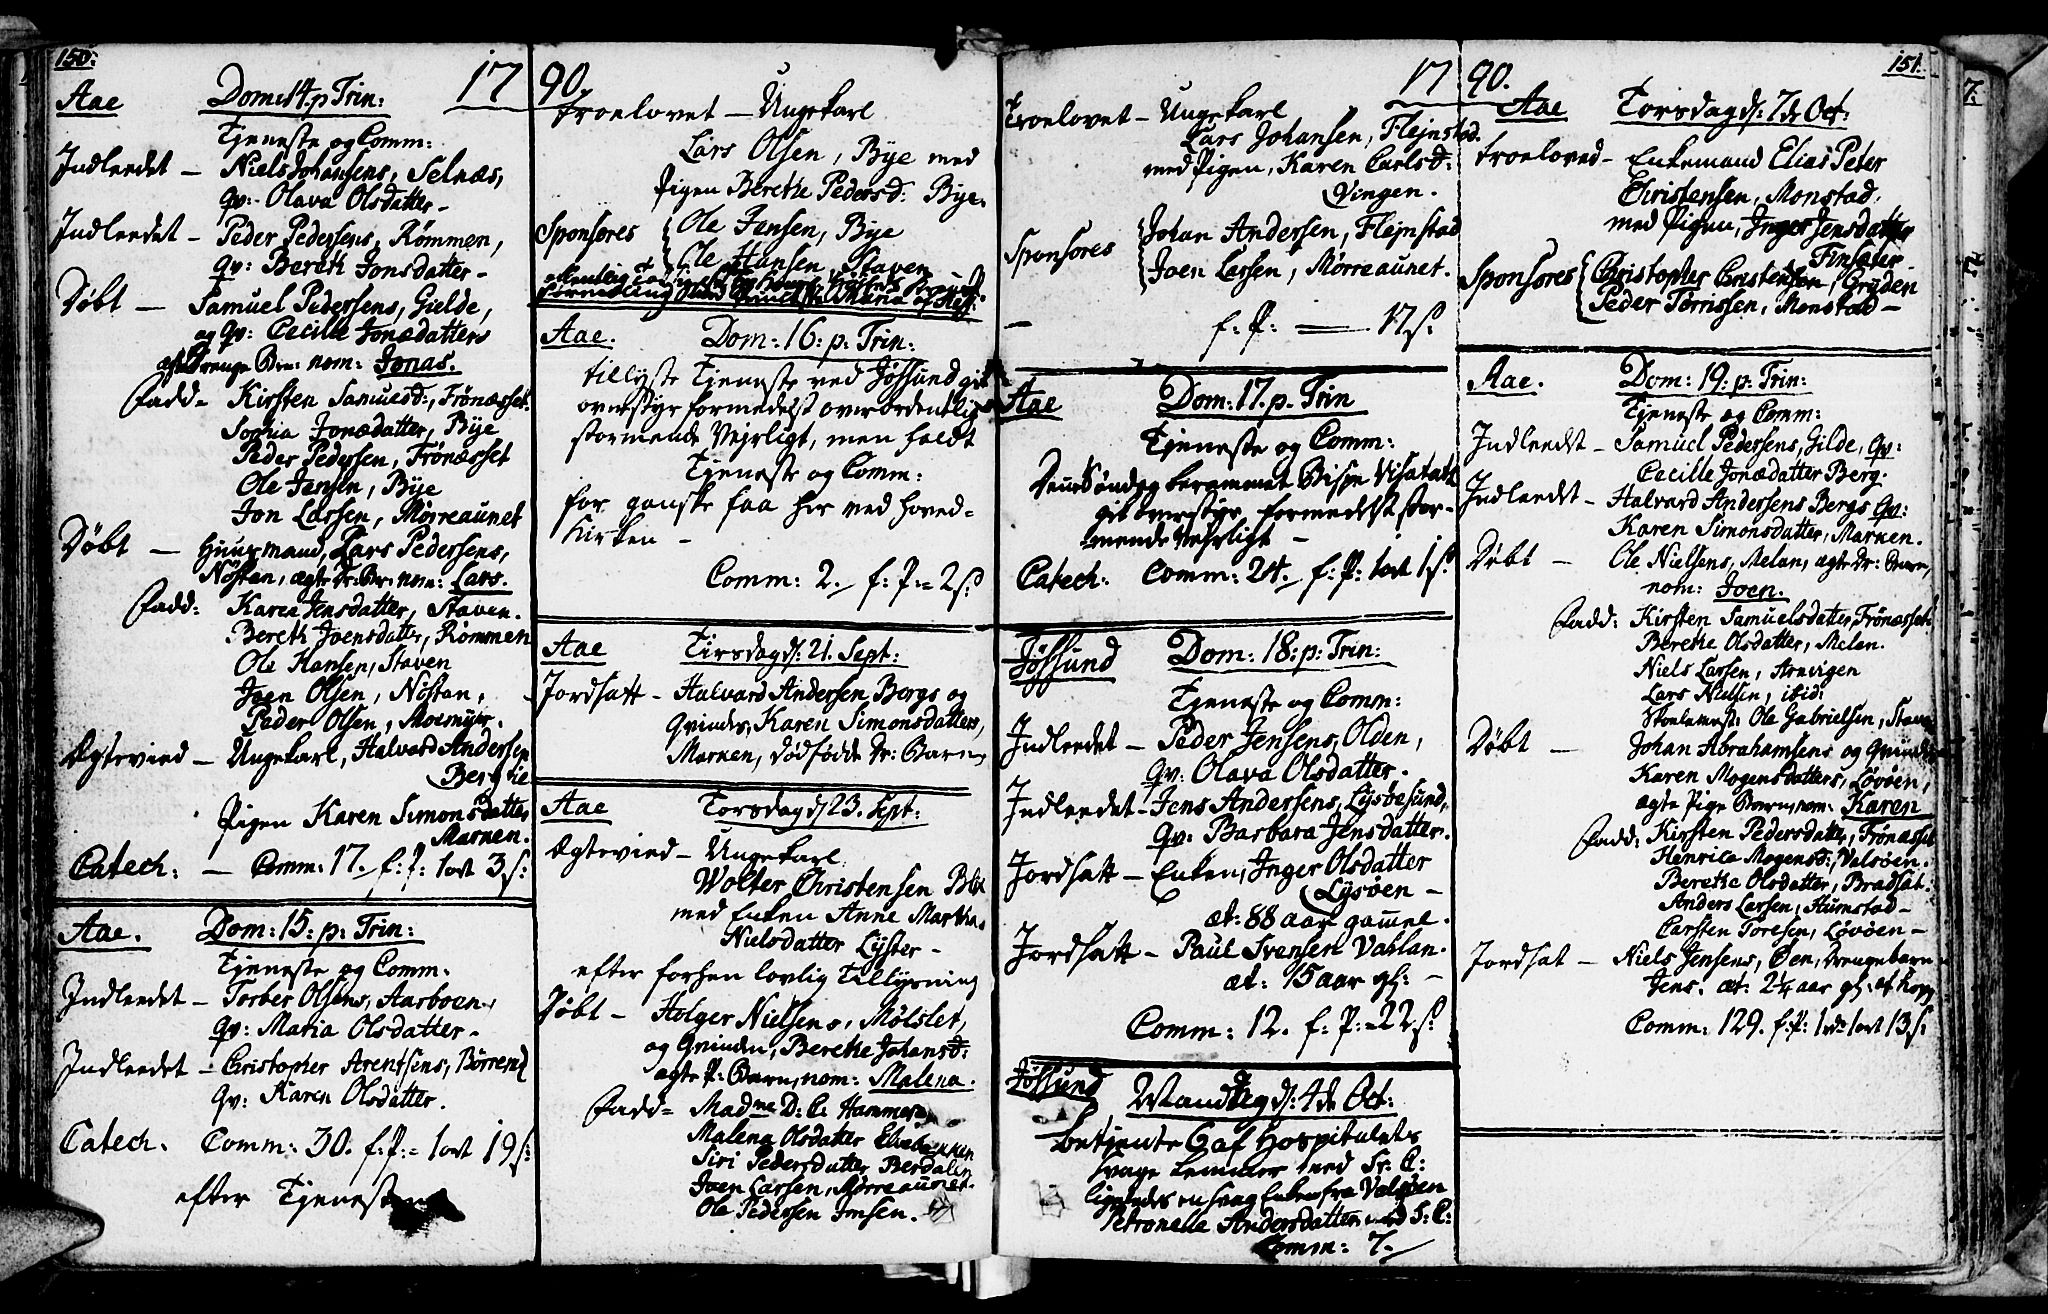 150:
1790.
Aae Dom: 14 p Trin:
Tjeneste og Comm:
Indleedet – Niels Johansens, Selnæs,
qv:- Olava Olsdatter –
Indleedet – Peder Pedersens, Rømmen,
qv: Bereth Jonsdatter –
Døbt – Samuel Pedersens, Gielde,
og qv: Cecille Jonædatters
ægte Drenge Brn: nom: Jonas.
Fadd= Kirsten Samuesd:, Frønæsset.
Sophia Jonædatter, Bye
Peder Pedersen, Frønæsset
Ole Jensen, Bye
Jon Larsen, Mørreaunet
Døbt – Huusmand, Lars Pedersens,
Nøstan, ægte Dr: Br: nom: Lars.
Fadd: Karen Jensdatter, Staven.
Bereth Joensdatter, Rømmen
Ole Hansen, Staven
Joen Olsen, Nøstan,
Peder Olsen, Moemyr.
Ægtevied – Ungekarl, Halvard Andersen
Berg tie
Pigen Karen Simonsdatter
Marken.
Catech: – Comm: 17. f: P: 1 ort 3 s:
Aae. Dom: 15: p: Trin:
Tjeneste og Comm.
Indleedet – Torber Olsens, Aarboen,
qv: Maria Olsdatter –
Indleedet – Christopher Arentsens, Børrend
qv: Karen Olsdatter.
Catech. Comm: 30. f: P:= 1 ort 19 s:
efter Tjenesten
troelovet – Ungekarl
Lars Olsen, Bye med
Pigen Berethe Pedersd: Bye.
Sponsores Ole Jensen, Bye
Ole Hansen, Staven
Aae. Dom: 16: p: Trin:
tillyste Tjeneste ved Jøssund gik
overstyr formedelst overordentlig
stormende Vejrligt, men holdt
Tjeneste og Comm:
for ganske faa her ved hoved=
Kirken –
Comm: 2. f: P:= 2 s:
Aae Tirsdag d: 21. Sept:
Jordsatt – Halvard Andersen Bergs og
Qvindes, Karen Simonsdatters,
Marken, dødfødde Dr: Barn
Aae Torsdag d 23. Sept:
Ægtevied – Ungekarl
Wolter Christensen
med Enken Anne Martha
Nielsdatter Lyster –
efter forhen lovlig Tillysning
Døbt – Holger Nielsens, Mølslet,
og Qvinden, Berethe Johansd:
ægte P: Barn, nom: Malena.
Fadd= Madme D: C: Hammer
Malena Olsdatter
Siri Pedersdatter Berdalen
Joen Larsen, Mørreaunet
Ole Pedersen Imsen.
1790. 151.
Troelovet – Ungekarl
Lars Johansen, Flejnstad.
med Pigen, Karen Carlsd:
Vingen.
Sponsores Johan Andersen, Flejnstad
Joen Larsen, Mørreaunet.
– f: P: — 17 s:
Aae Dom: 17. p. Trin
Tjeneste og Comm:
Denne Søndag berammet Bispe Visitatz
gik overstyr, formedelst stor-
mende Vejrligt –
Catech: Comm: 24. f: P: 1 ort 1 s:
Jøssund Dom: 18: p: Trin:
Tjeneste og Comm:
Indleedet – Peder Jensens, Olden,
qv: Olava Olsdatter.
Indleedet – Jens Andersens, Lysøesund,
qv: Barbara Jensdatter.
Jordsatt – Enken, Inger Olsdatter
Lysøen –
æt: 88 aar gamel.
Jordsatt – Paul Svensen Vahlan.
æt: 15 aar gl: –
Comm: 12. f: P:= 22 s:
Jøssund Mandag d: 4de Oct:
betjente 6 af Hospitalets
svage Lemmer med Sr: C:
ligeledes en svag Enke fra Valsøen
Petronelle Andersdatter med S: C:
Comm: 7.
Aae Torsdag d: 7de Oct:
troeloved – Enkemand Elias Peter
Christensen, Monstad.
med Pigen, Inger Jensdatter
Finsæter
Sponsores Christopher Christensen, Gryden
Peder Torrissen, Monstad –
Aae. Dom: 19. p: Trin:
Tjeneste og Comm:
Indleedet – Samuel Pedersens, Gilde, qv:
Cecille Jonædatter Berg.
Indleedet – Halvard Andersens Bergs qv:
Karen Simonsdatter, Marken.
Døbt – Ole Nielsens, Melan, ægte Dr: Barn,
nom: Joen.
Fadd: Kirsten Samuelsdatter, Frønæsset
Berethe Olsdatter, Melan.
Niels Larsen, Arnvigen
Lars Nielsen, ibid:
Skolemest: Ole Gabrielsen, Staven
Døbt – Johan Abrahamsens og Qvindes
Karen Mogensdatters, Løvøen,
ægte Pige Barn, nom: Karen
Fadd: Kirsten Pedersdatter, Frønæsset
Henrica Mogensd:, Valsøen.
Berethe Olsdatter, Bradsat:
Anders Larsen, Humstad –
Carsten Toresen, Løvøen –
Jordsat – Niels Jensens, Øen, Drengebarn
Jens. æt: 2¼ aar gl: af Kopp
Comm: 129. f: P: 1 rd 1 ort 13 s: